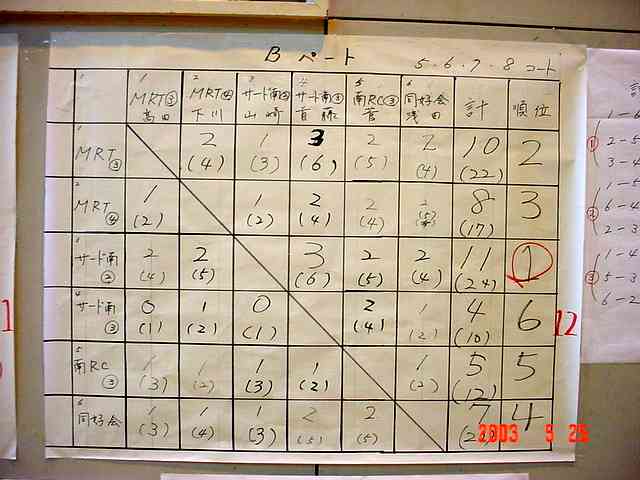 B パート
5・6・7・8 コート
1 MRT③ 高田 2 MRT④ 下川 サード南② 山崎 4 サード南③ 首藤 5 南RC③ 菅 6 同好会 浅田 計 順位
1 MRT③ 2 (4) 1 (3) 3 (6) 2 (5) 2 (4) 10 (22) 2
2 MRT④ 1 (2) 1 (2) 2 (4) 2 (4) 2 8 (17) 3
サード南② 2 (4) 2 (5) 3 (6) 2 (5) 2 (4) 11 (24) 1
4 サード南③ 0 (1) 1 (2) 0 (1) 2 (4) 1 (2) 4 (10) 6
5 南RC③ 1 (3) 1 (2) 1 (3) 1 (2) 1 (2) 5 (12) 5
6 同好会 1 (3) 1 (4) 1 (3) 2 (5) 2 (5) 7 4
① 2-5
3-4
1-5
② 6-4
2-3
1-4
③ 5-3
6-2
12
2003 9 25